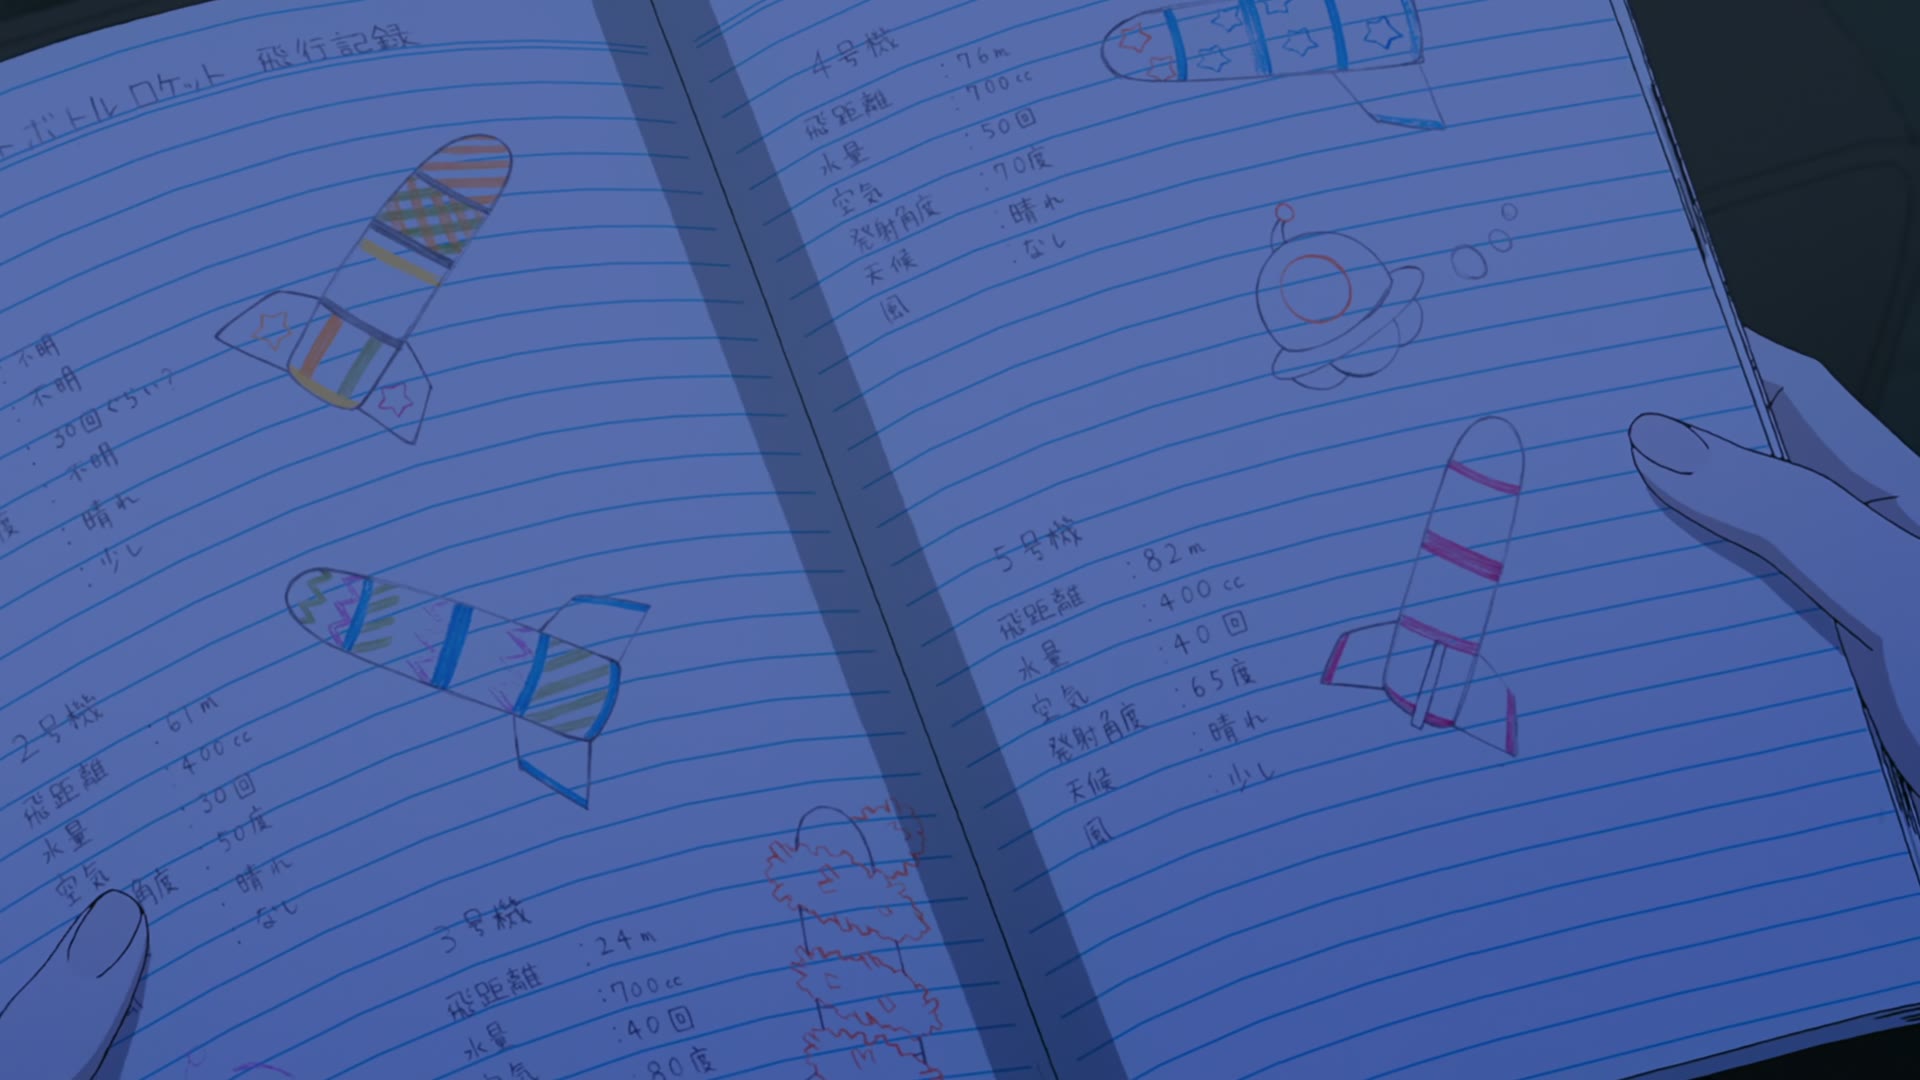 トボトルロケット 飛行記録
: 不明
: 不明
: 30回ぐらい?
: 不明
度 : 晴れ
: 少し
2号機
飛距離 : 61m
水量 : 400cc
空気 : 30回
角度 : 50度
: 晴れ
: なし
3号機
飛距離 : 24m
水量 : 700cc
空気 : 40回
: 80度
4号機
飛距離 : 76m
水量 : 700cc
空気 : 50回
発射角度 : 70度
天候 : 晴れ
風 : なし
5号機
飛距離 : 82m
水量 : 400cc
空気 : 40回
発射角度 : 65度
天候 : 晴れ
風 : 少し